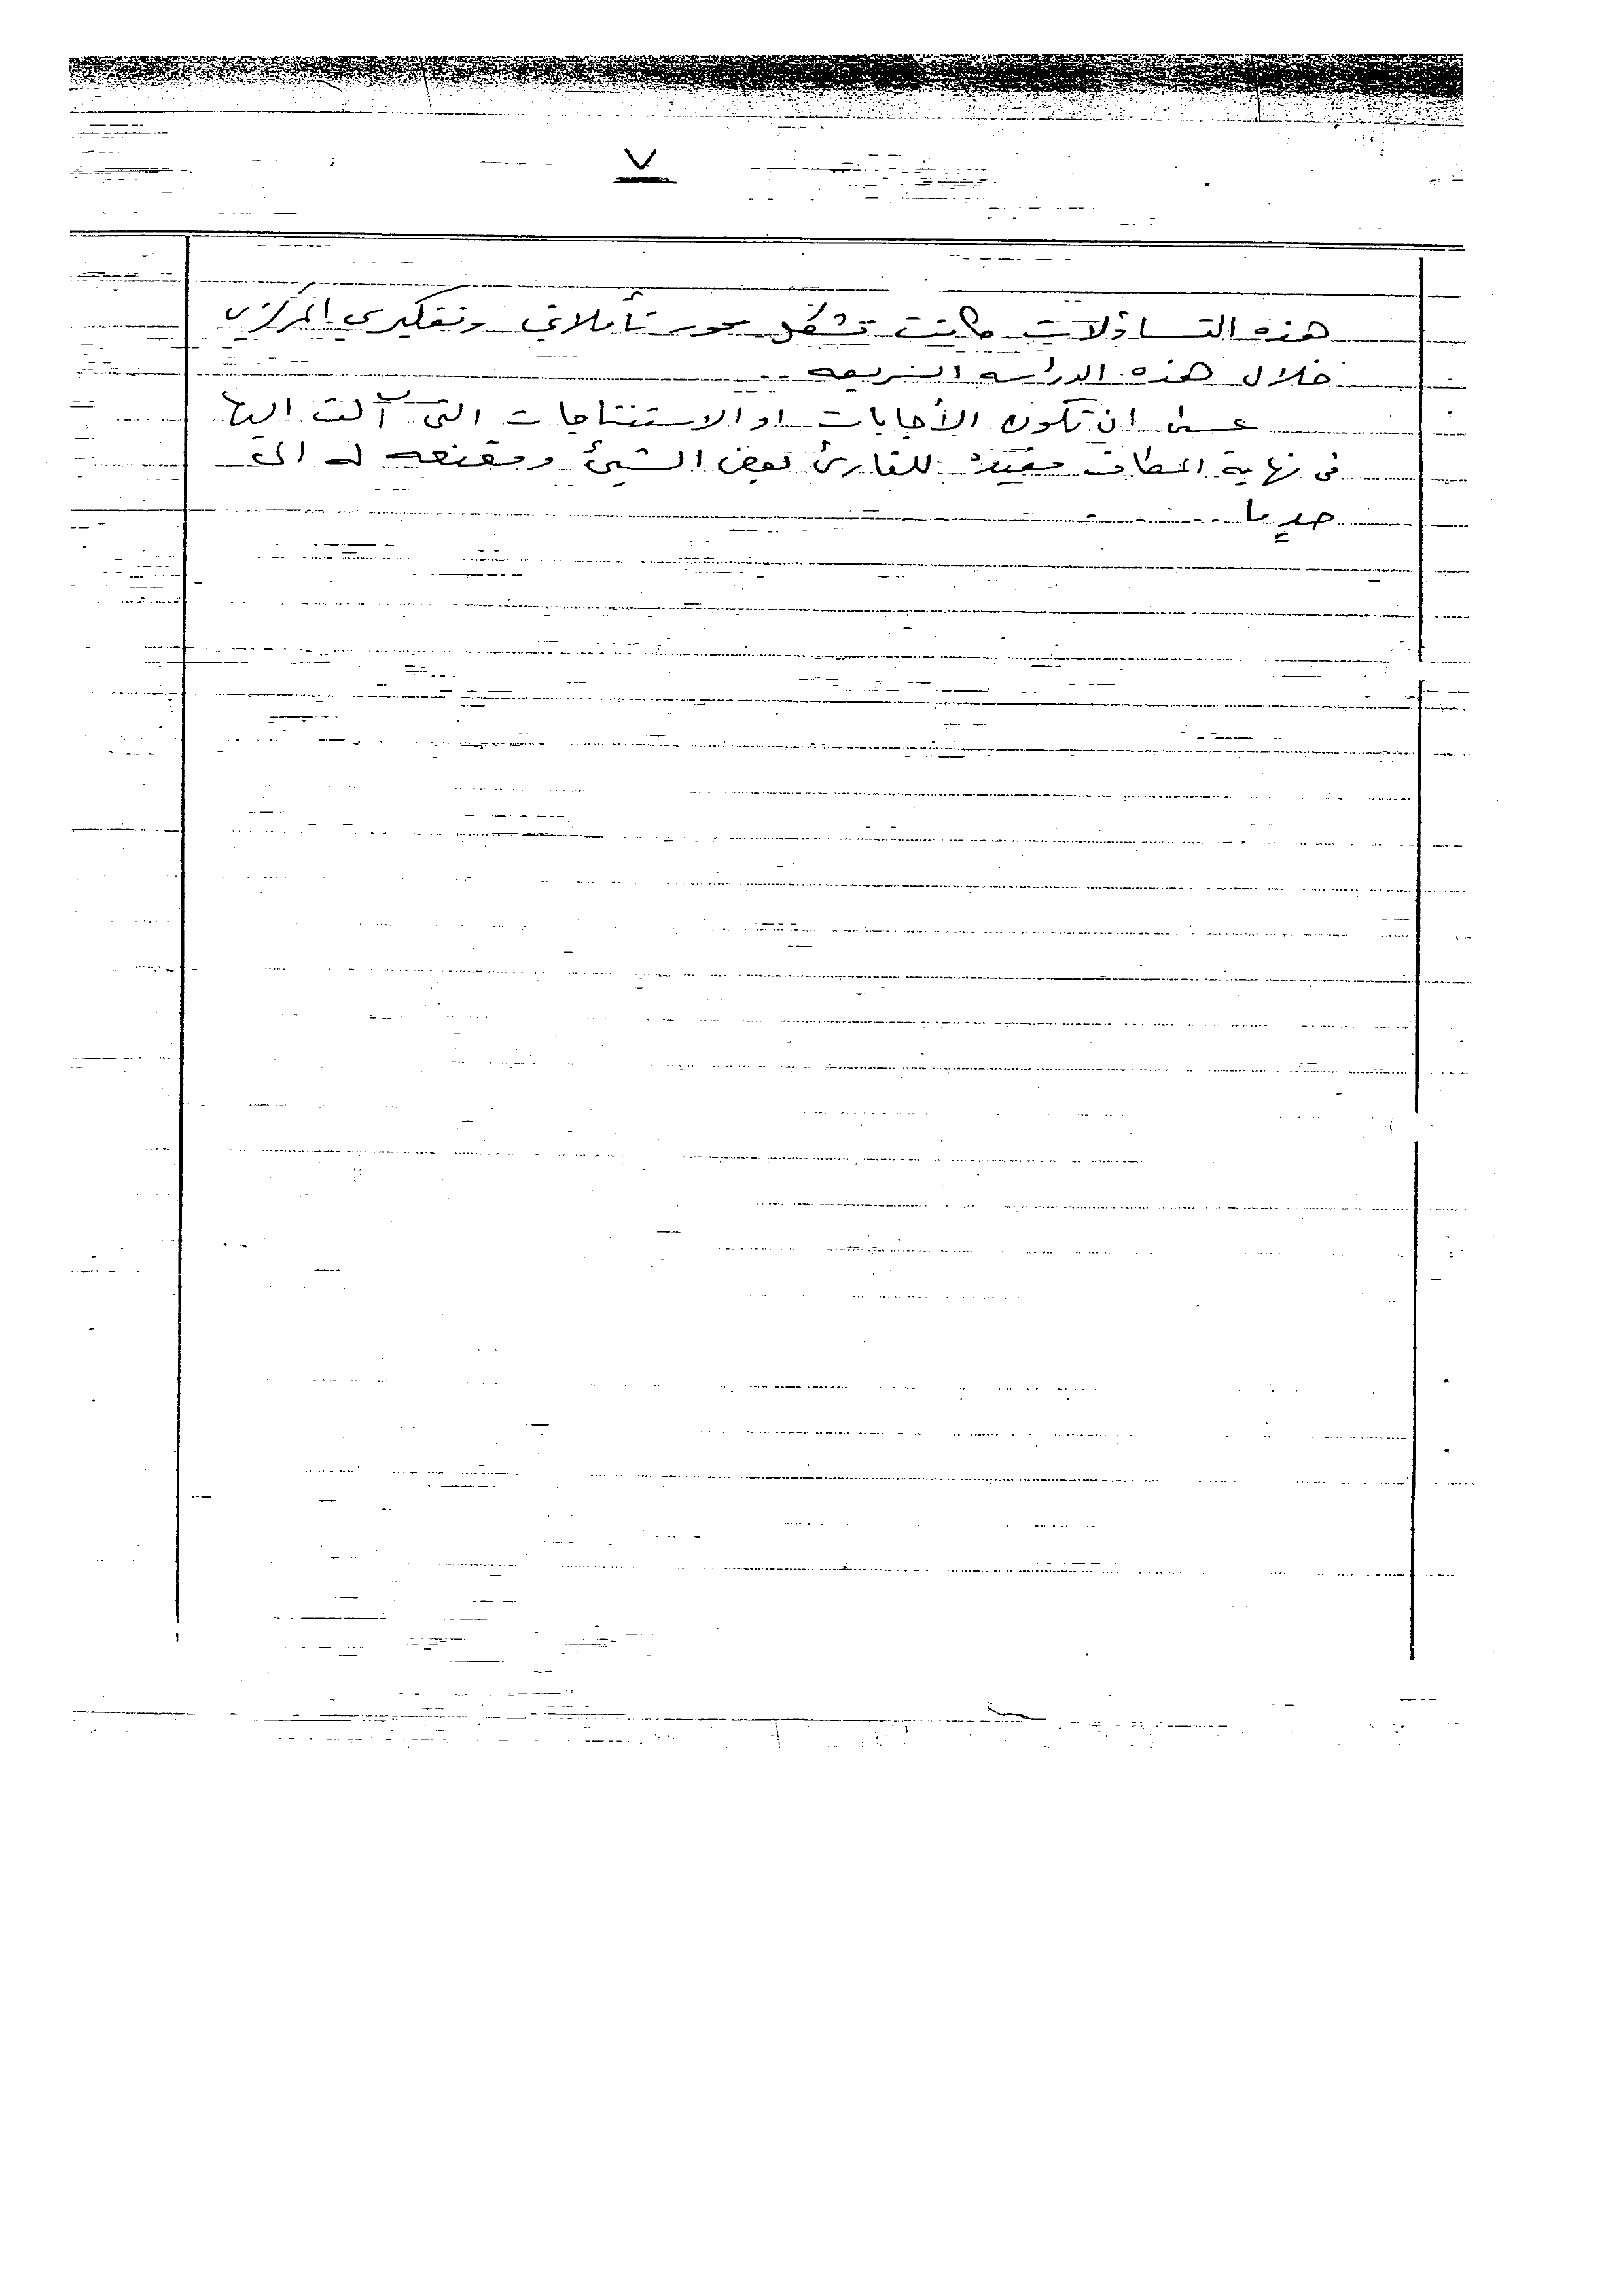 ٧
هذه التساؤلات كانت تشكل محور تأملاتي وتفكيري المركزي
خلال هذه الدراسه السريعه ..
عسى ان تكون الأجابات او الاستنتاجات التي آلت اليها
في نهاية المطاف مفيدة للقارئ بعض الشيئ ومقنعه له الى
حدٍ ما .....